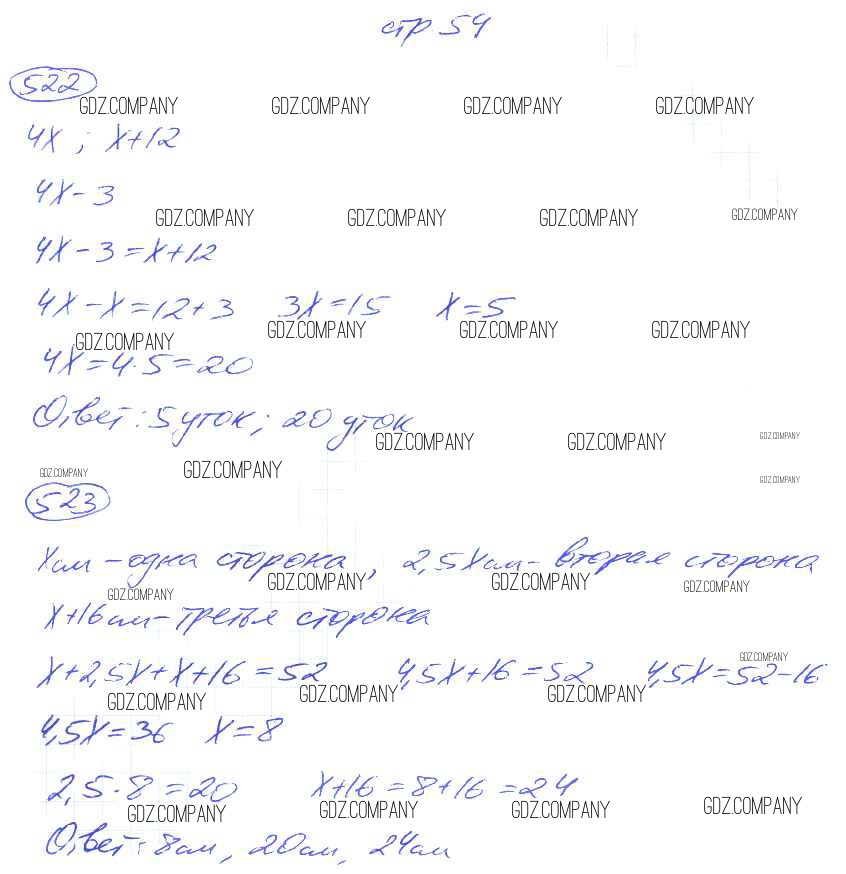 стр 54
522
GDZ.COMPANY GDZ.COMPANY GDZ.COMPANY GDZ.COMPANY
4x ; x+12
4x-3
GDZ.COMPANY GDZ.COMPANY GDZ.COMPANY GDZ.COMPANY
4x-3=x+12
4x-x=12+3 3x=15 x=5
GDZ.COMPANY GDZ.COMPANY GDZ.COMPANY GDZ.COMPANY
4x=4·5=20
Ответ: 5 уток; 20 уток
GDZ.COMPANY GDZ.COMPANY GDZ.COMPANY
GDZ.COMPANY GDZ.COMPANY GDZ.COMPANY
523
x см - одна сторона, 2,5x см - вторая сторона
GDZ.COMPANY GDZ.COMPANY GDZ.COMPANY GDZ.COMPANY
x+16 см - третья сторона
GDZ.COMPANY
x+2,5x+x+16=52 4,5x+16=52 4,5x=52-16
GDZ.COMPANY GDZ.COMPANY GDZ.COMPANY
4,5x=36 x=8
2,5·8=20 x+16=8+16=24
GDZ.COMPANY GDZ.COMPANY GDZ.COMPANY GDZ.COMPANY
Ответ: 8 см, 20 см, 24 см